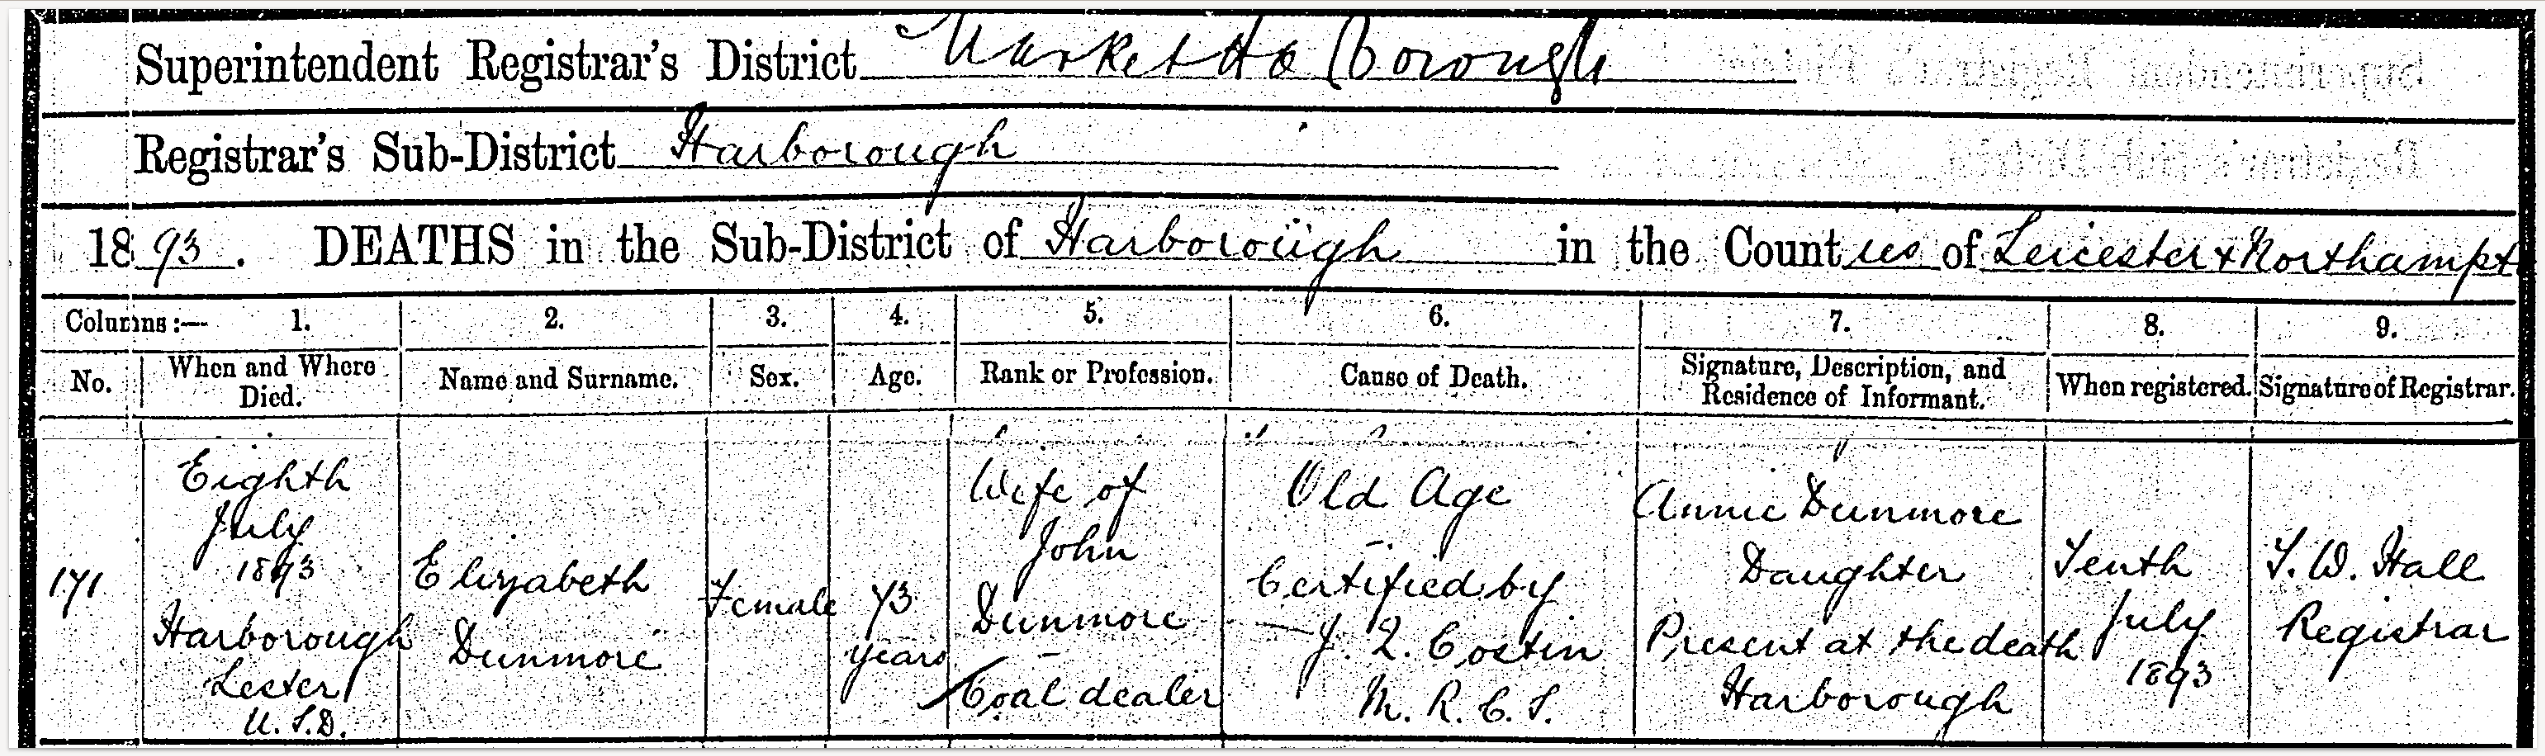 Superintendent Registrar's District Market Ha Borough
Registrar's Sub-District Harborough
1893. DEATHS in the Sub-District of Harborough in the Counties of Leicester & Northampt
Columns:— 1. 2. 3. 4. 5. 6. 7. 8. 9.
No. When and Where Died. Name and Surname. Sex. Age. Rank or Profession. Cause of Death. Signature, Description, and Residence of Informant. When registered. Signature of Registrar.
171
Eighth
July
1893
Harborough
Lester
U.S.D.
Elizabeth
Dunmore
Female
73
years
Wife of
John
Dunmore
Coal dealer
Old Age
Certified by
J. Q. Costin
M.R.C.S.
Annie Dunmore
Daughter
Present at the death
Harborough
Tenth
July
1893
T. W. Hall
Registrar